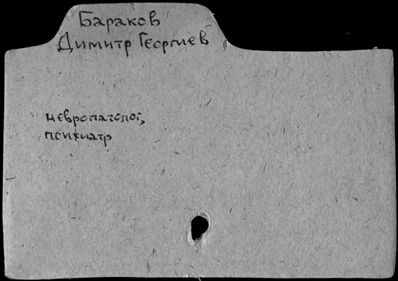 Бараков
Димитр Георгиев
невропатолог,
психиатр